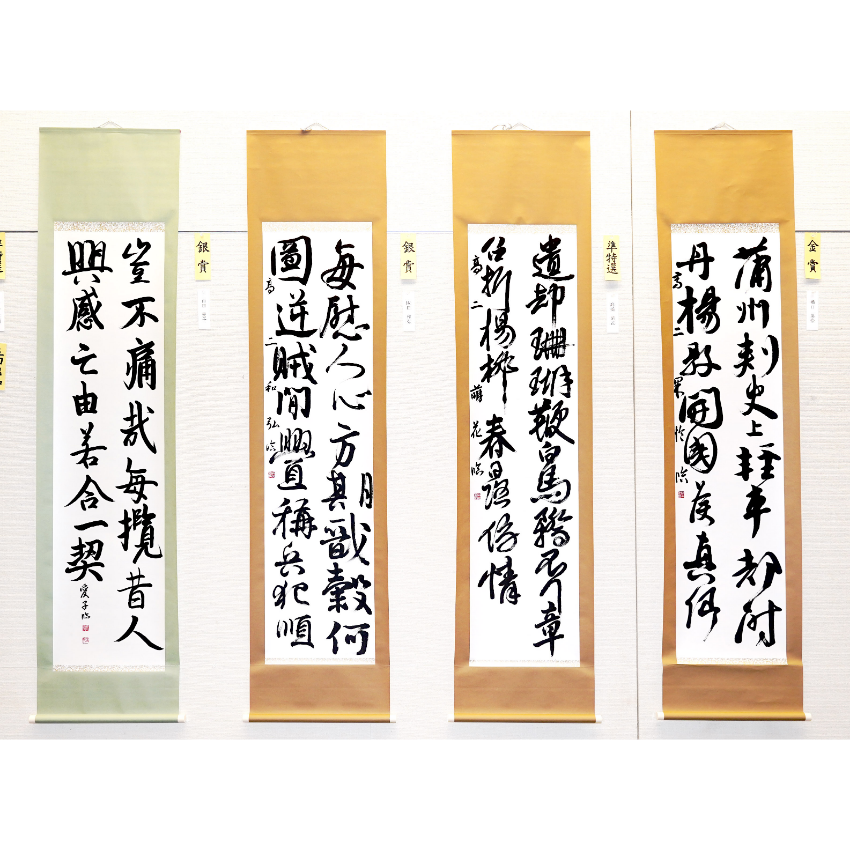 金賞
蒲州刺史上輕車都尉
丹楊縣開國侯真卿
高二
準特選
遺却珊瑚鞭白馬驕不行章
台折楊柳春日路傍情
高二 萌花臨
銀賞
毎慰人心方期戩穀何
圖逆賊閒釁稱兵犯順
高二 和弘臨
銀賞
豈不痛哉每攬昔人
興感之由若合一契
愛子臨